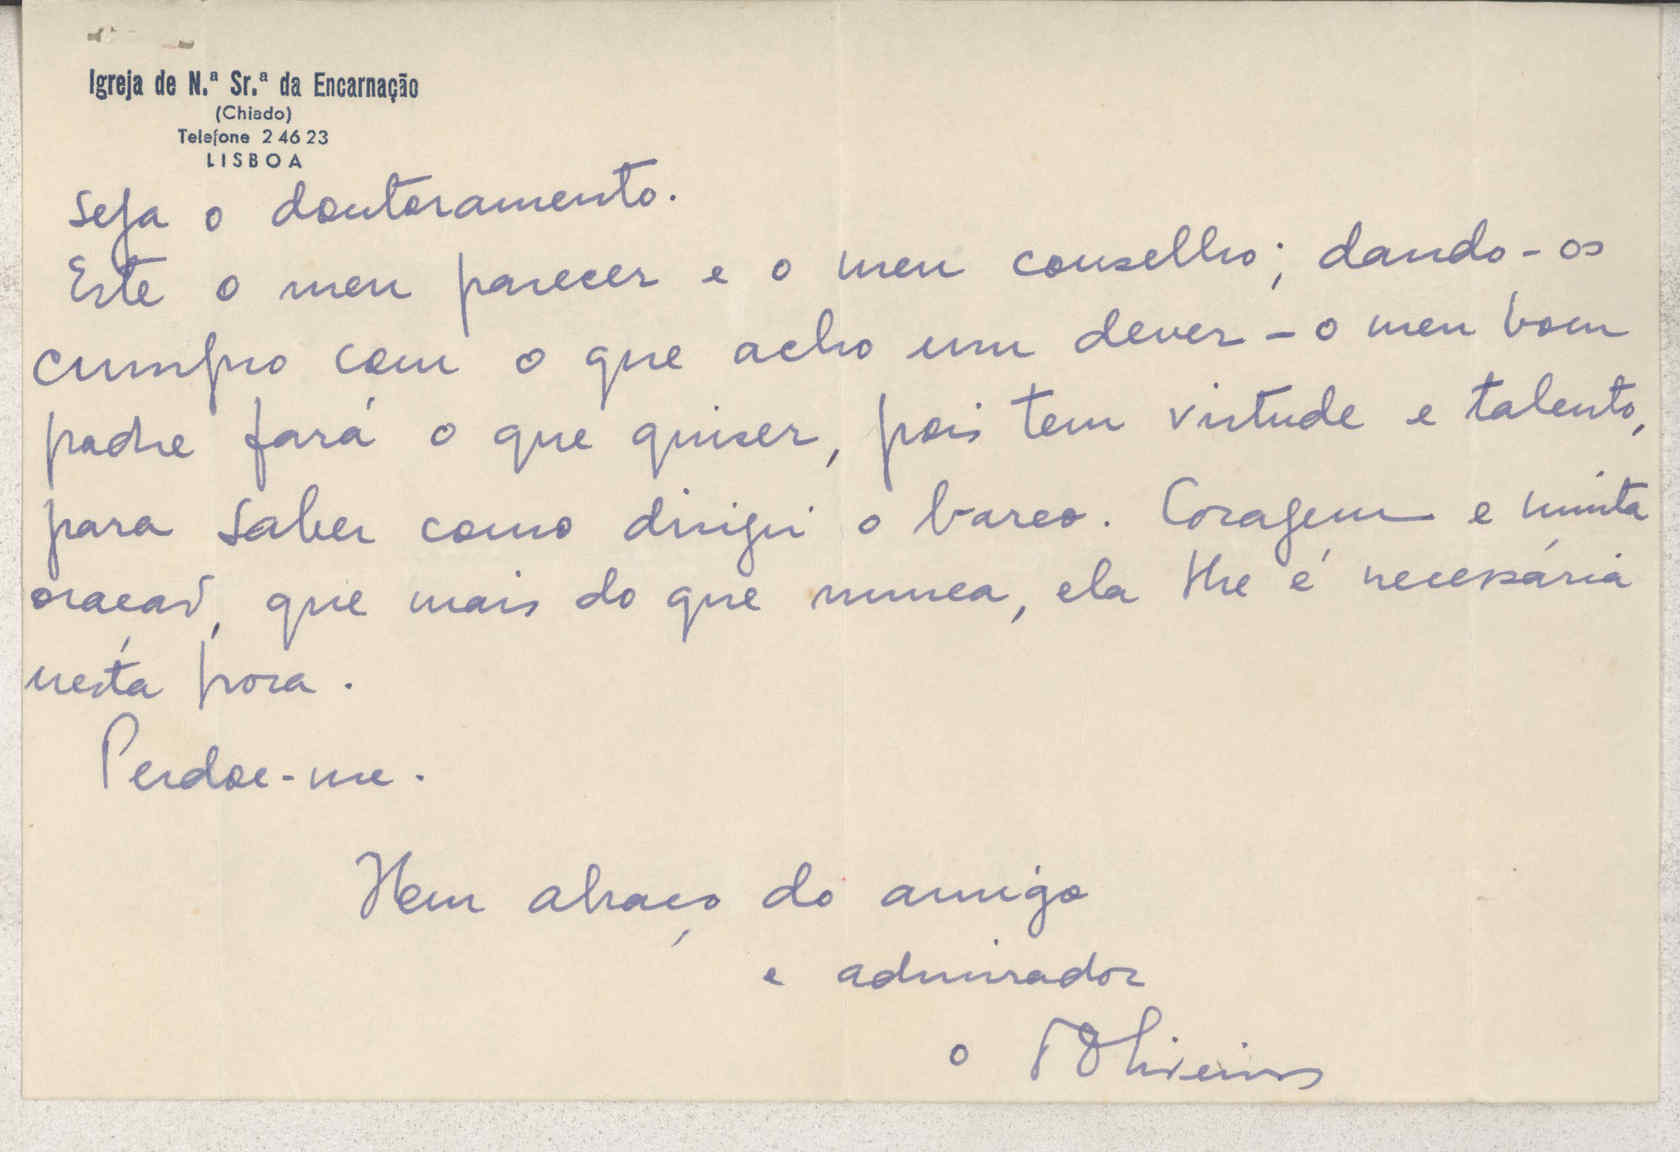 Igreja de N.ª Sr.ª da Encarnação
(Chiado)
Telefone 2 46 23
LISBOA
seja o doutoramento.
Este o meu parecer e o meu conselho; dando-os
cumpro com o que acho um dever - o meu bom
padre fará o que quiser, pois tem virtude e talento,
para saber como dirigir o barco. Coragem e muita
oração, que mais do que nunca, ela lhe é necessária
nesta hora.
Perdoe-me.
Hem abraço do amigo
e admirador
o